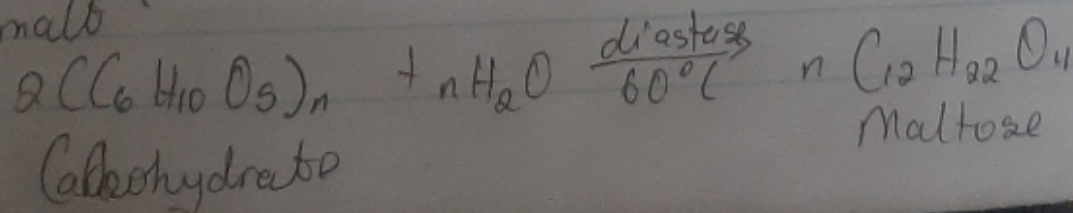 malt
2(C₆H₁₀O₅)ₙ + nH₂O diastase/60°C n C₁₂H₂₂O₁₁
Carbohydrate Maltose